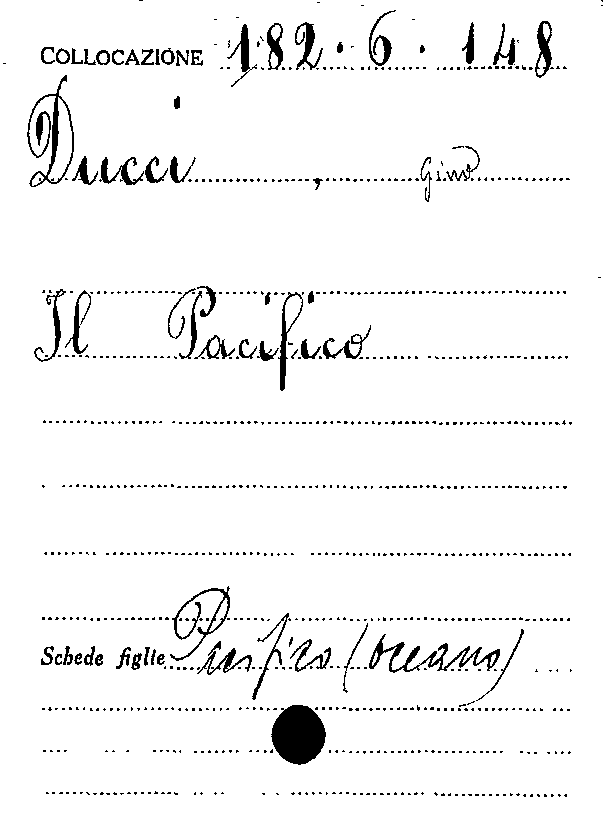 COLLOCAZIONE 182.6.148
Ducci, Gino
Il Pacifico
Schede figlie Pacifico (oceano)